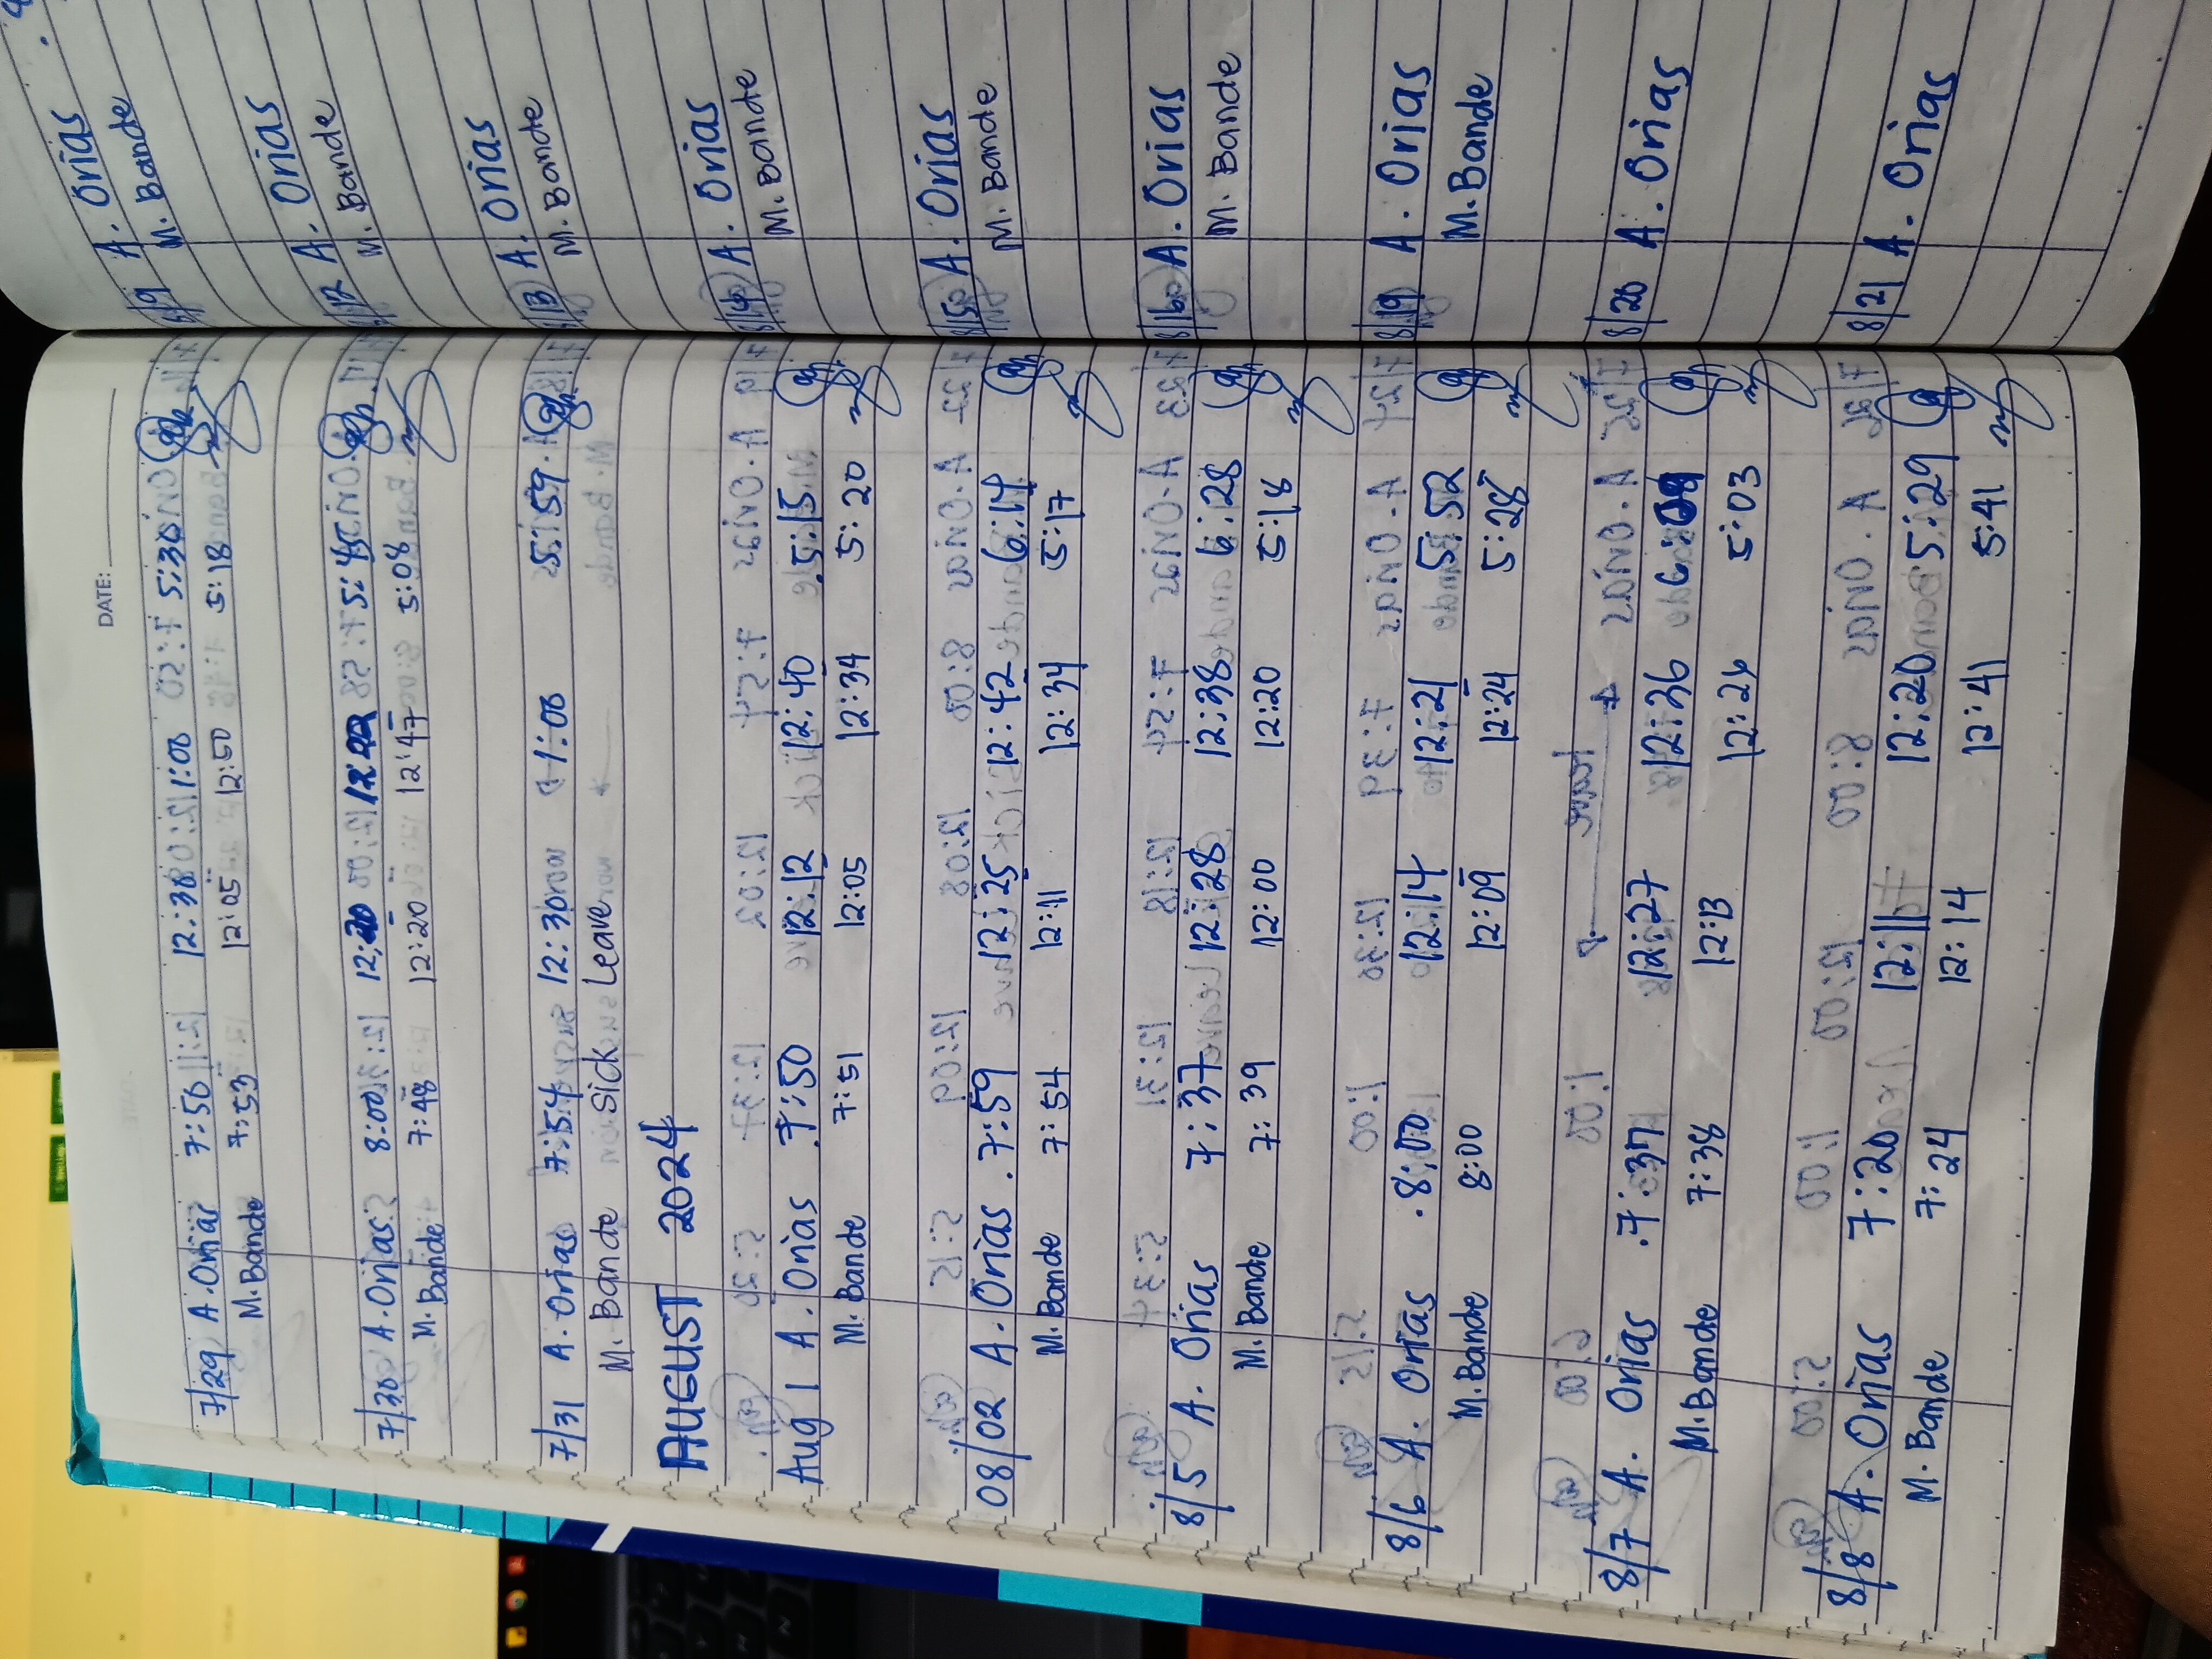 DATE:
7/29 A. Orias 7:56 12:30 1:00 5:30
M. Bande 7:53 12:05 12:50 5:18
7/30 A. Orias 8:00 5:45
M. Bande 7:48 12:20 12:47 5:08
7/31 A. Orias 7:54 12:30 1:00 5:59
M. Bande Sick Leave
AUGUST 2024
Aug 1 A. Orias 7:50 12:12 12:40 5:15
M. Bande 7:51 12:05 12:34 5:20
08/02 A. Orias 7:59 12:25 12:42 6:14
M. Bande 7:54 12:11 12:34 5:17
8/5 A. Orias 7:37 12:28 12:38 6:28
M. Bande 7:39 12:00 12:20 5:18
8/6 A. Orias 8:00 12:14 12:21 5:52
M. Bande 8:00 12:09 12:24 5:28
8/7 A. Orias 7:37 12:27 12:36 6:09
M. Bande 7:38 12:13 12:26 5:03
8/8 A. Orias 7:20 12:11 12:20 5:29
M. Bande 7:24 12:14 12:41 5:41
A. Orias
8/9 A. Orias
M. Bande
A. Orias
8/12 A. Orias
M. Bande
8/13 A. Orias
M. Bande
8/14 A. Orias
M. Bande
8/15 A. Orias
M. Bande
8/16 A. Orias
M. Bande
8/19 A. Orias
M. Bande
8/20 A. Orias
8/21 A. Orias